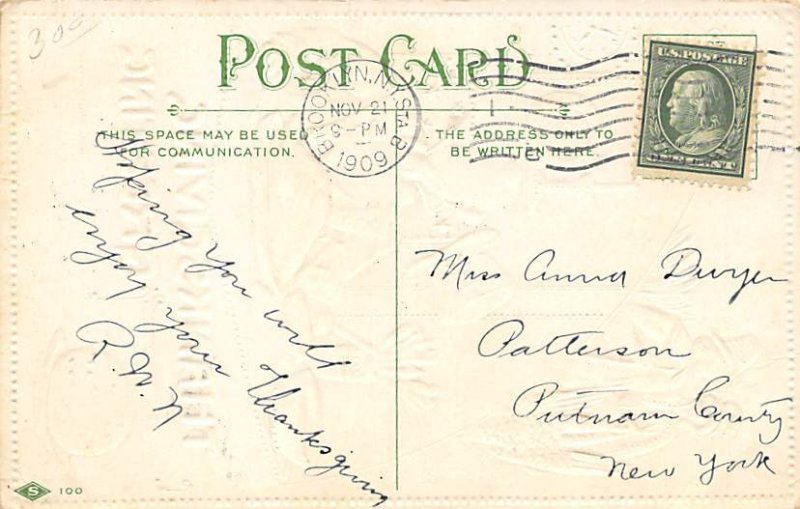 300
POST CARD
U.S. POSTAGE
BROOKLYN, N.Y. STA. B
NOV 21
9-PM
1909
1
ONE CENT
THIS SPACE MAY BE USED
FOR COMMUNICATION.
THE ADDRESS ONLY TO
BE WRITTEN HERE.
Hoping you will
enjoy your Thanksgiving
Miss Anna Dwyer
Patterson
Putnam County
New York
S 100